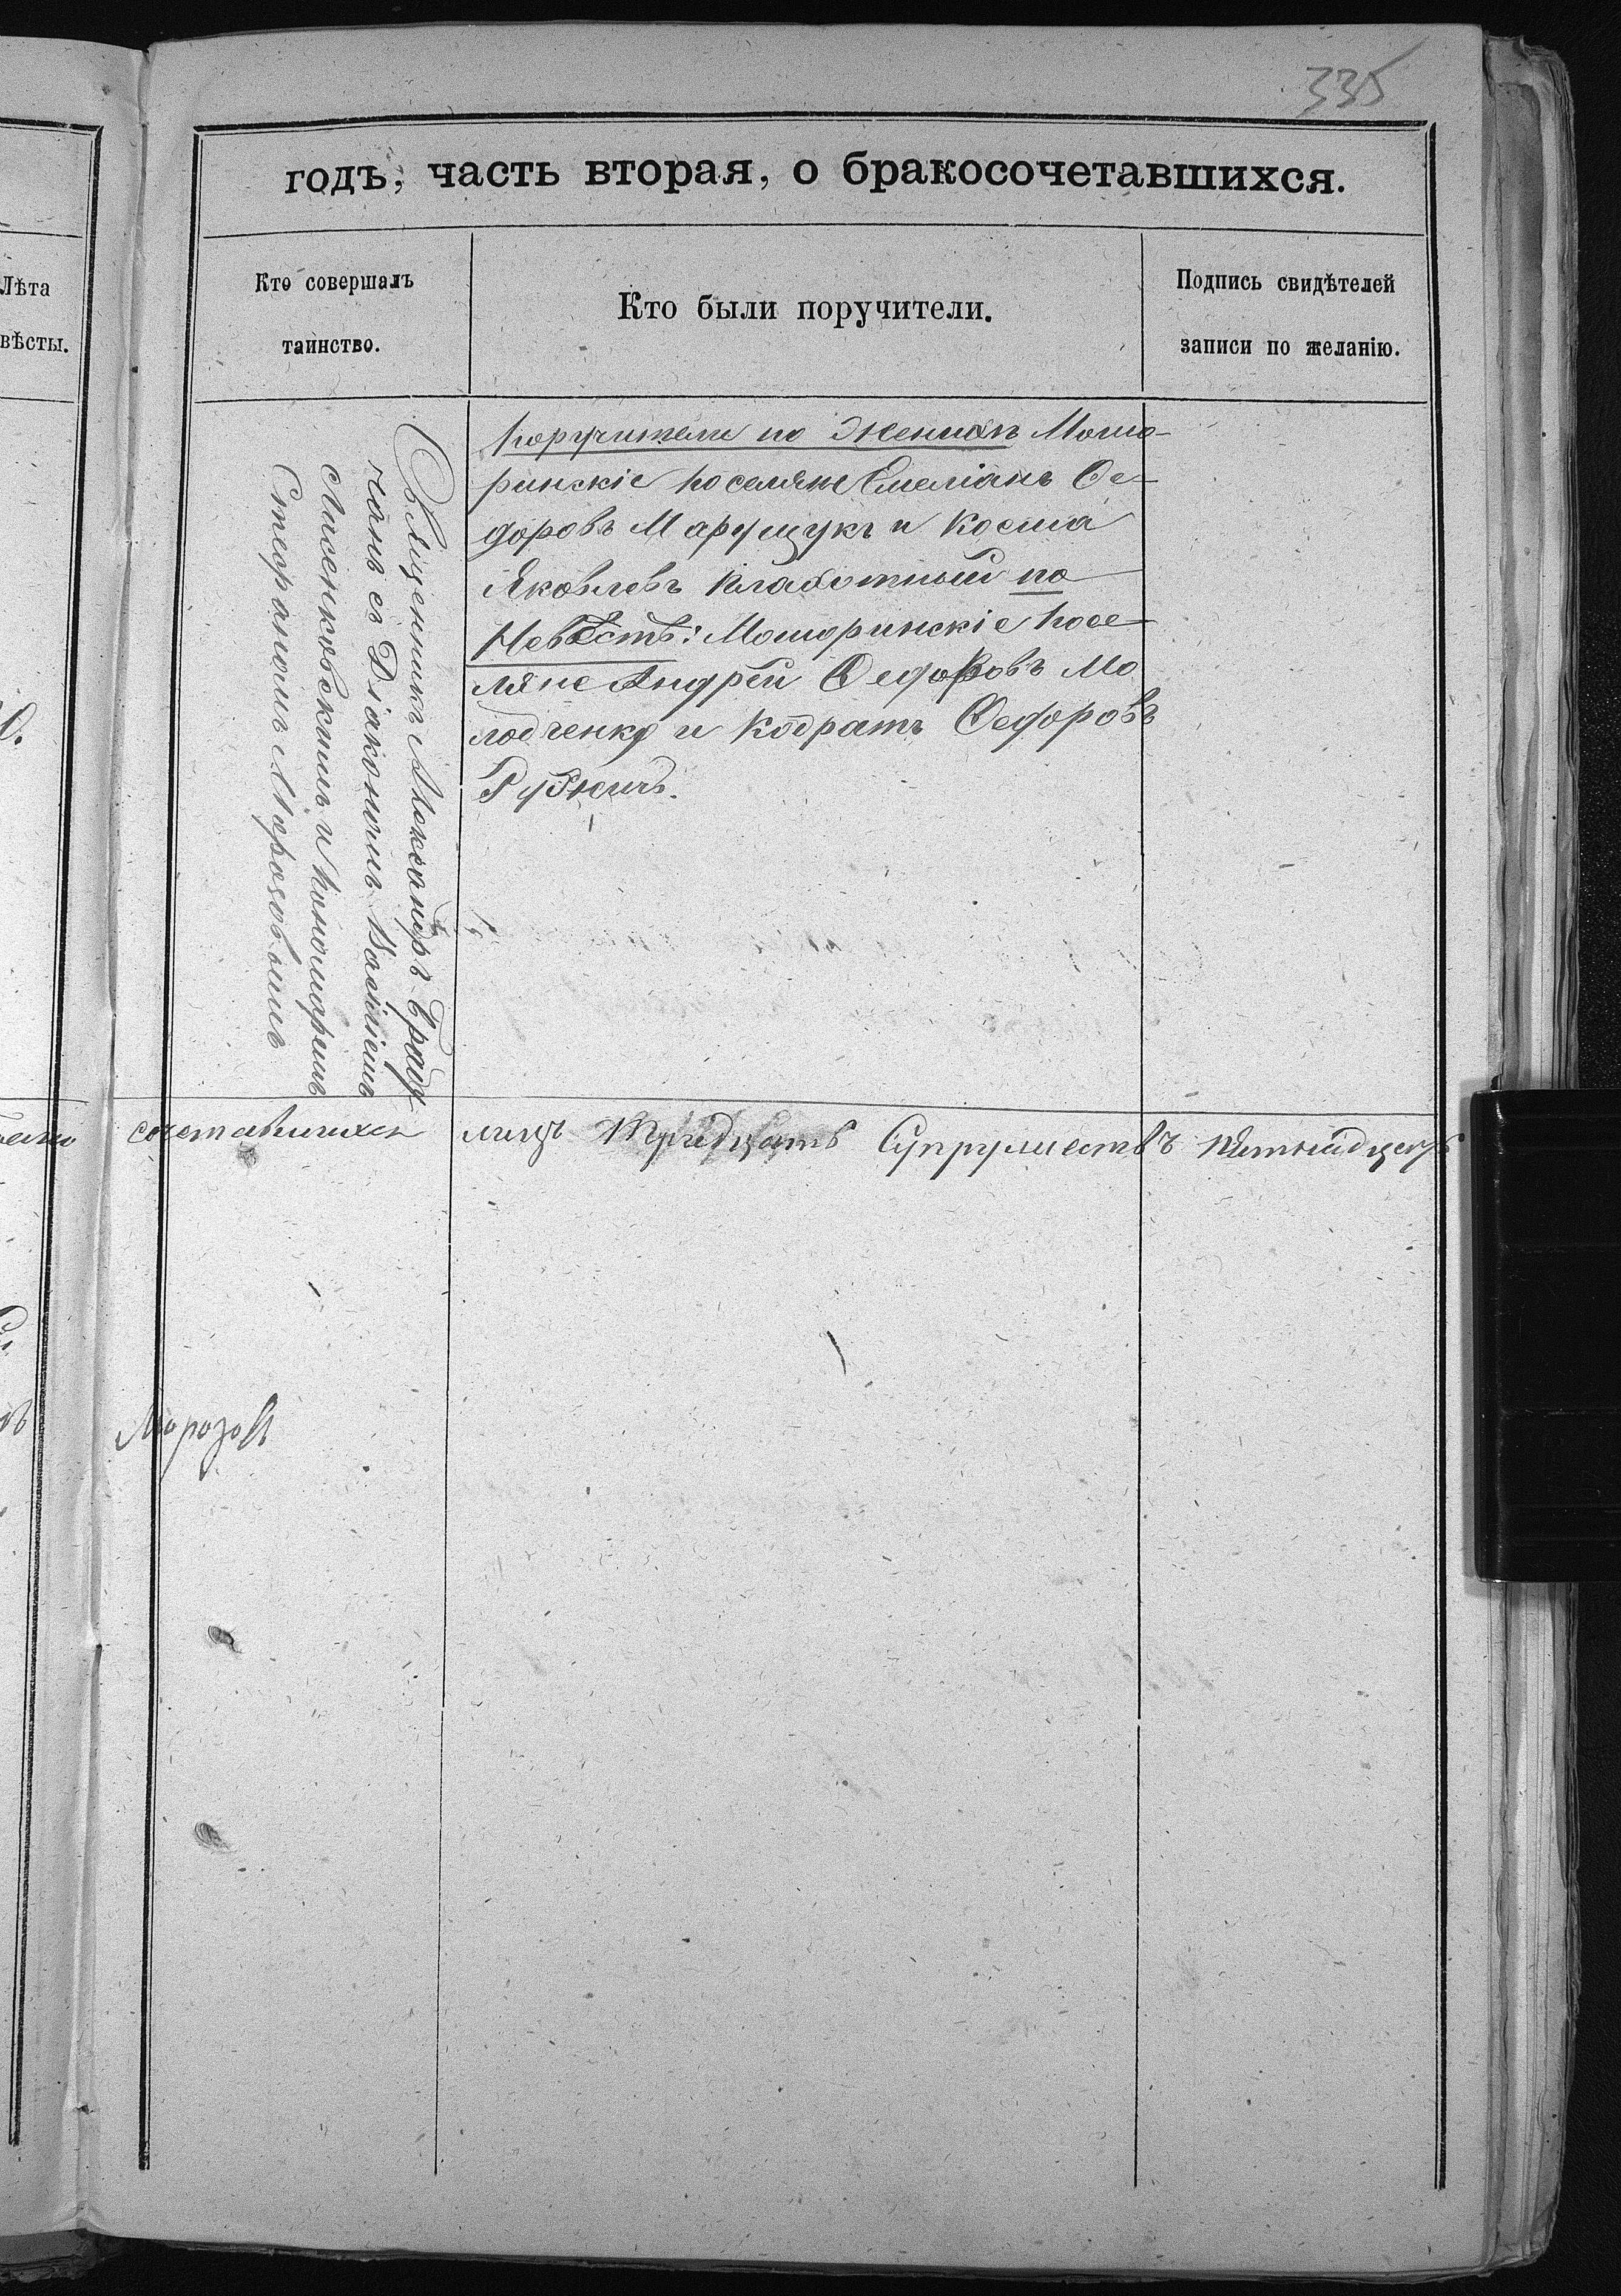 335
годъ, часть вторая, о бракосочетавшихся.
Лѣта
вѣсты.
Кто совершалъ
таинство.
Кто были поручители.
Подпись свидѣтелей
записи по желанію.
Священникъ Александръ Брад
чанъ съ Діакономъ Василіемъ
Лисенковскимъ и Пономаремъ
Стефаномъ Морозовымъ
Поручители по Женихѣ Мошо-
ринскіе поселяне Емеліанъ Ѳе-
доровъ Марущукъ и Косма
Яковлевъ Плахотный по
Невѣстѣ: Мошоринскіе посе-
ляне Андрей Ѳедоровъ Мо
лодченко и Кодратъ Ѳедоровъ
Гужичъ.
сочетавшихся лицъ Тридцать Супружествъ пятнадцать
Морозовъ